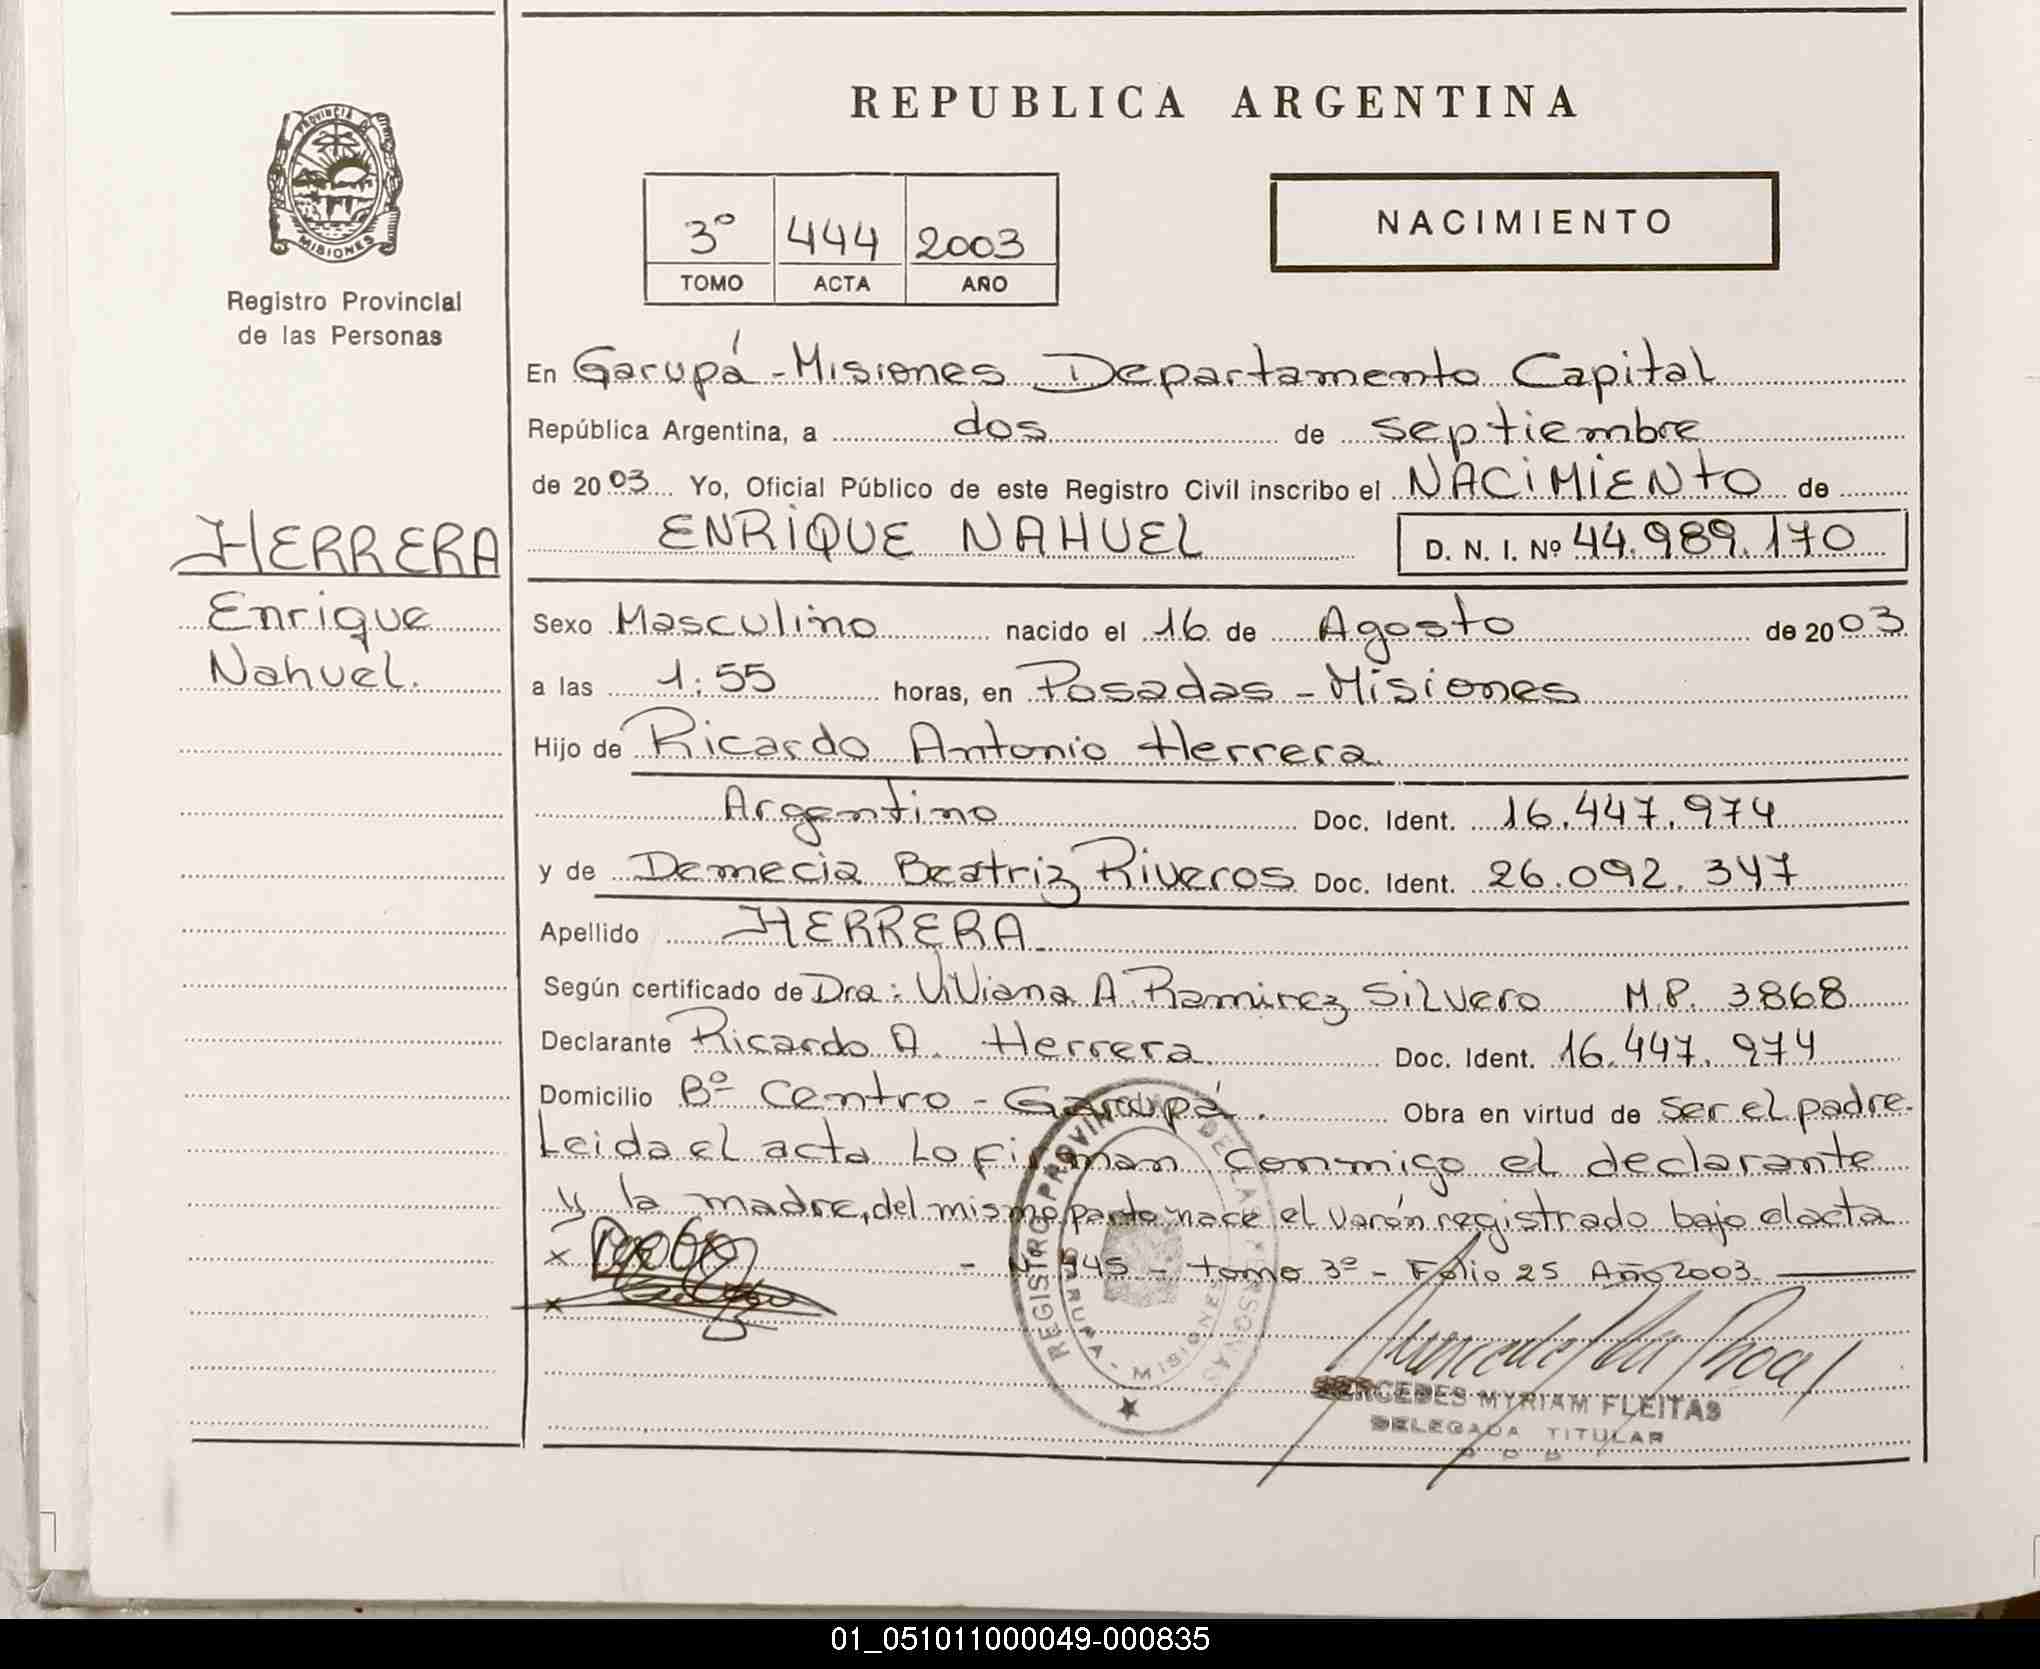 REPUBLICA ARGENTINA
PROVINCIA DE
MISIONES
Registro Provincial
de las Personas
3º 444 2003
TOMO ACTA AÑO
NACIMIENTO
HERRERA
Enrique
Nahuel.
En Garupá - Misiones Departamento Capital
República Argentina, a dos de septiembre
de 2003 Yo, Oficial Público de este Registro Civil inscribo el NACIMIENTO de
ENRIQUE NAHUEL D. N. I. Nº 44.989.170
Sexo Masculino nacido el 16 de Agosto de 2003
a las 1:55 horas, en Posadas - Misiones
Hijo de Ricardo Antonio Herrera
Argentino Doc. Ident. 16.447.974
y de Demecia Beatriz Riveros Doc. Ident. 26.092.347
Apellido HERRERA
Según certificado de Dra: Viviana A. Ramirez Silvero M.P. 3868
Declarante Ricardo A. Herrera Doc. Ident. 16.447.974
Domicilio Bº Centro - Garupá. Obra en virtud de ser el padre.
Leida el acta Lo firman conmigo el declarante
y la madre, del mismo parto nace el varón registrado bajo el acta
- Nº 445 - tomo 3º - Folio 25 Año 2003.
REGISTRO PROVINCIAL DE LAS PERSONAS
GARUPA - MISIONES
MERCEDES MYRIAM FLEITAS
DELEGADA TITULAR
01_051011000049-000835